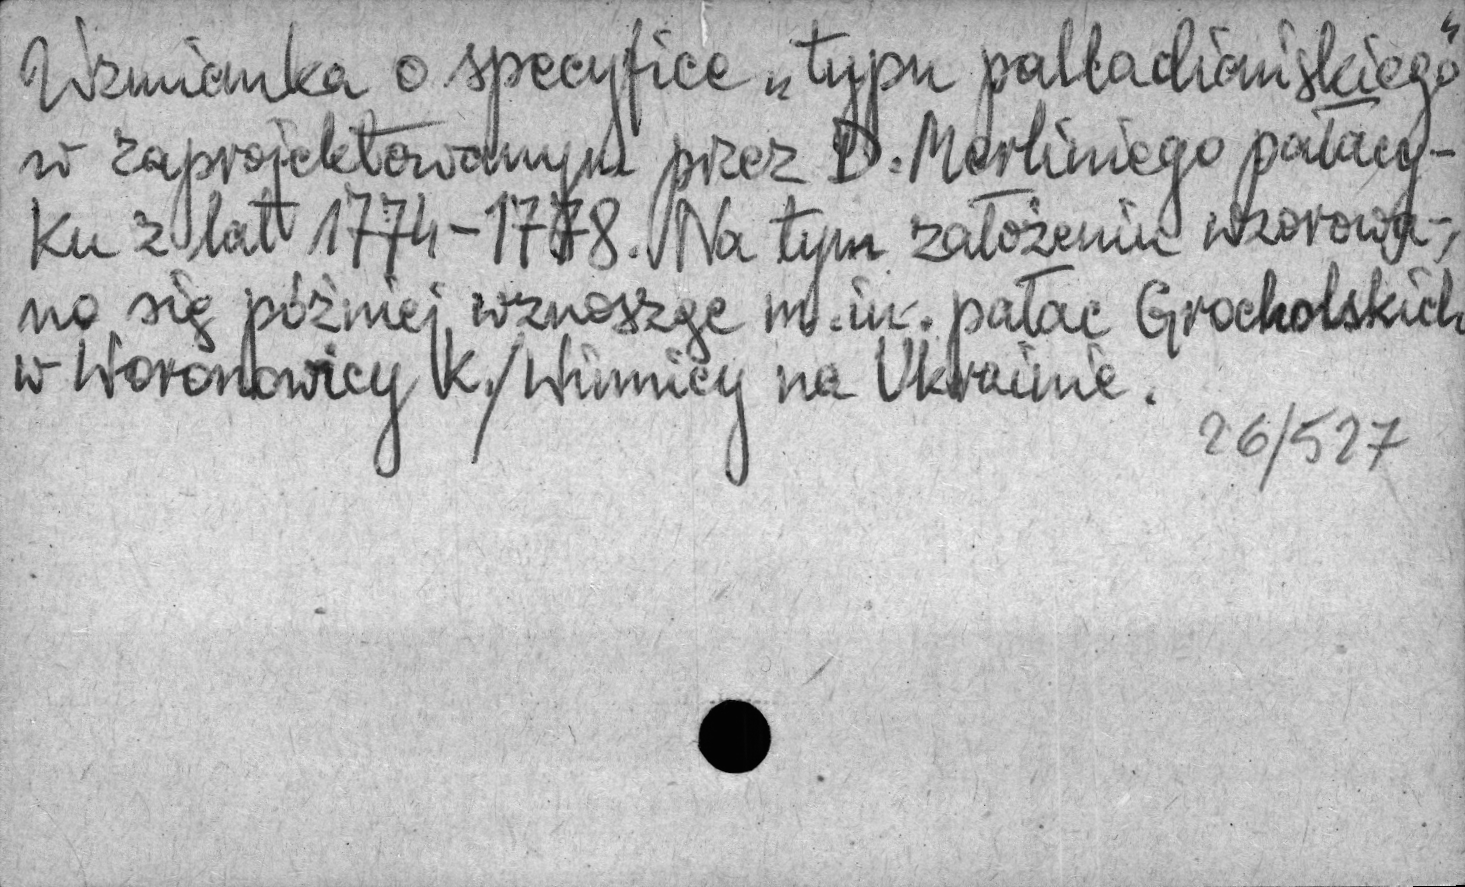 Wzmianka o specyfice „typu palladiańskiego”
w zaprojektowanym przez D. Merliniego pałacy-
ku z lat 1774-1778. Na tym założeniu wzorowa-
no się później wznosząc m.in. pałac Grocholskich
w Woronowicy k/Winnicy na Ukrainie.
26/527